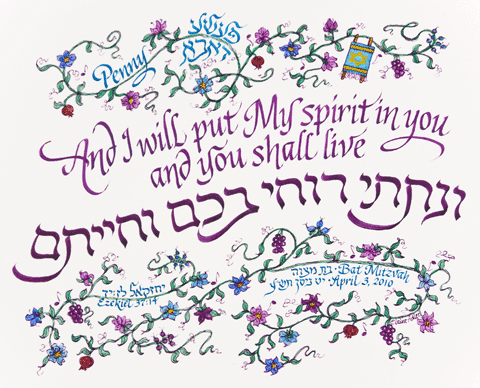 Penny
And I will put My spirit in you
and you shall live
ונתתי רוחי בכם וחייתם
יחזקאל לז:יד
Ezekiel 37:14
בת מצוה · Bat Mitzvah
יט ניסן תש״ע · April 3, 2010